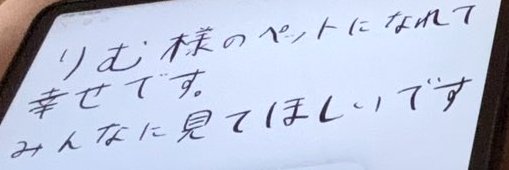 りむ様のペットになれて
幸せです。
みんなに見てほしいです